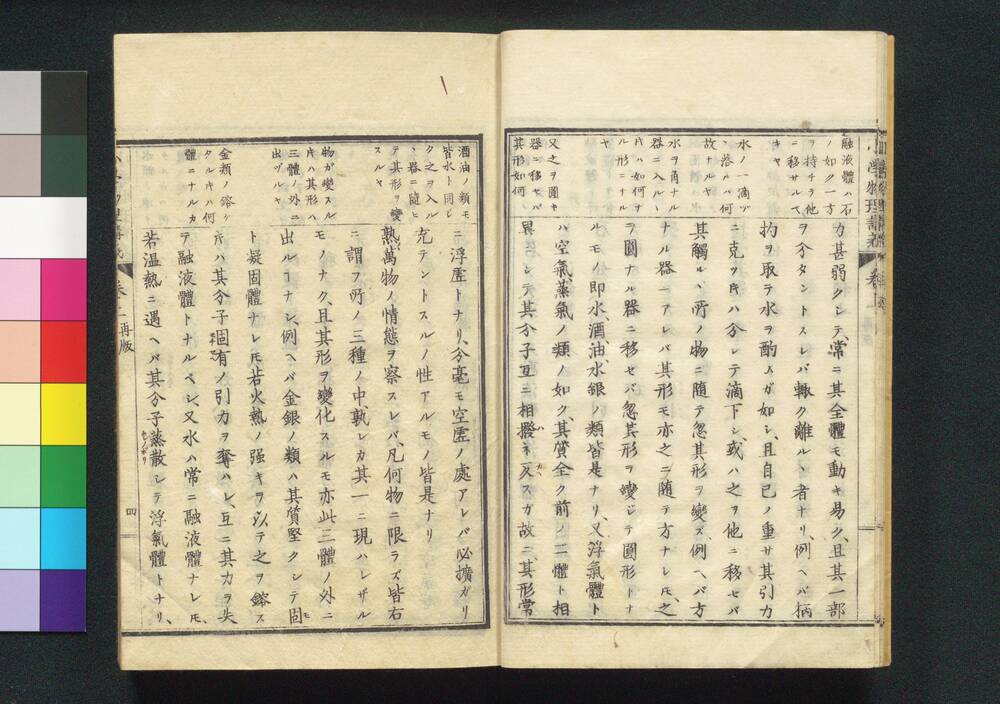 融液體ハ石
ノ如ク一方
ヲ持チテ他
ニ移サルベ
キヤ
水ノ一滴ヅ
ヽ落ルハ何
故ナルヤ
水ヲ角ナル
器ニ入ルル
片ハ如何ナ
ル形ニナル
ヤ
又之ヲ圓キ
器ニ移セバ
其形如何
力甚弱クシテ、常ニ其全體モ動キ易ク、且其一部
ヲ分タントスレバ輙ク離ルヽ者ナリ、例ヘバ柄
杓ヲ取テ水ヲ酌ムガ如シ、且自己ノ重サ其引力
ニ克ヲ片ハ分レテ滴下シ、或ハ之ヲ他ニ移セバ
其觸ルヽ所ノ物ニ隨テ忽其形ヲ變ズ、例ヘバ方
ナル器ニアレバ其形モ亦之ニ隨テ方ナレ𪜈、之
ヲ圓ナル器ニ移セバ忽其形ヲ變ジテ圓形トナ
ルモノ即水、酒、油、水銀ノ類皆是ナリ、又浮氣體ト
ハ空氣蒸氣ノ類ノ如ク、其質全ク前ノ二體ト相
異ニシテ其分子互ニ相撥ネ反スガ故ニ、其形常
酒油ノ類モ
皆水ト同シ
ク之ヲ入ル
ヽ器ニ隨ヒ
テ其形ヲ變
スルヤ
物ガ變スル
片ハ其形ハ
三體ノ外ニ
出ヅルヤ
金類ノ鎔ケ
タル片ハ何
體ニナルカ
ニ浮虛トナリ、分毫モ空虛ノ處アレバ必擴ガリ
充テントスルノ性アルモノ皆是ナリ
熟萬物ノ情態ヲ察スレバ、凡何物ニ限ラズ皆右
ニ謂フ所ノ三種ノ中孰レカ其一ニ現ハレザル
モノナク、且其形ヲ變化スルモ亦此三體ノ外ニ
出ルコナシ、例ヘバ金銀ノ類ハ其質堅クシテ固
ト凝固體ナレ𪜈若火熱ノ强キヲ以テ之ヲ鎔ス
片ハ其分子固有ノ引力ヲ奪ハレ、互ニ其力ヲ失
テ融液體トナルベシ、又水ハ常ニ融液體ナレ𪜈、
若温熱ニ遇ヘバ其分子蒸散シテ浮氣體トナリ、
再版
四